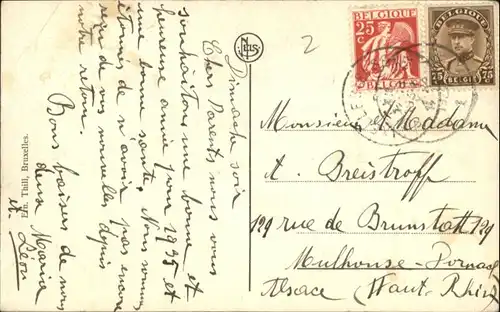 Dimanche soir
Chers Parents nous vous
souhaitons une bonne et
heureuse année pour 1935 et
une bonne santé. Nous sommes
étonnés de n'avoir pas encore
reçu de vos nouvelles depuis
notre retour.
Bons baisers de nous
deux Marie
et Léon
Ern. Thill, Bruxelles.
NELS
2
BELGIQUE
25 c
BELGIQUE
75 BELGIË 75
Monsieur et Madame
A. Breistroff
129 rue de Brunstatt 129
Mulhouse-Dornach
Alsace (Haut-Rhin)